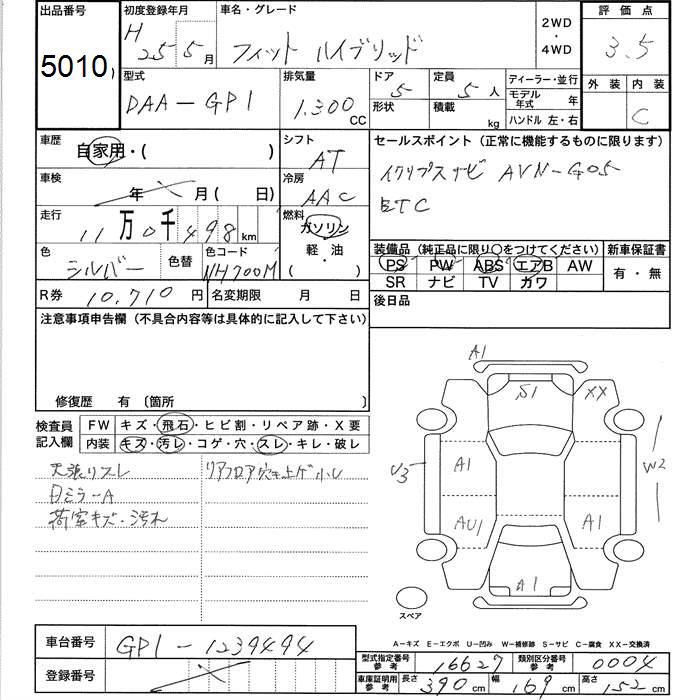 出品番号 初度登録年月 車名・グレード 評価点
5010 H 25 5月 フィット ハイブリッド 2WD・4WD 3.5
型式 排気量 ドア 定員 ディーラー・並行 外装 内装
DAA-GP1 1.300 CC 5 5人 モデル年式 年 C
形状 積載 kg ハンドル 左・右
車歴 シフト セールスポイント (正常に機能するものに限ります)
自家用・( ) AT イクリプスナビ AVN-G05
車検 冷房 ETC
年 月 ( 日) AAC
走行 燃料
11万0千498km ガソリン
色 色替 色コード 軽・油
シルバー NH700M ( )
装備品 (純正品に限り○をつけてください) 新車保証書
PS PW ABS エアB AW 有・無
SR ナビ TV カワ
R券 10,710円 名変期限 月 日 後日品
注意事項申告欄 (不具合内容等は具体的に記入して下さい)
修復歴 有 〔箇所 〕
検査員記入欄 FW キズ・飛石・ヒビ割・リペア跡・X要
内装 キズ・汚レ・コゲ・穴・スレ・キレ・破レ
天張リスレ リアフロア穴キ上ゲ小し
日ミラーA
荷室キズ・汚れ
A1
S1 XX
U3 A1 W2
AU1 A1
A1
スペア
A-キズ E-エクボ U-凹み W-補修跡 S-サビ C-腐食 XX-交換済
車台番号 GP1-1239494
型式指定番号参考 16627 類別区分番号参考 0004
登録番号
車庫証明用参考 長さ 390cm 幅 169cm 高さ 152cm